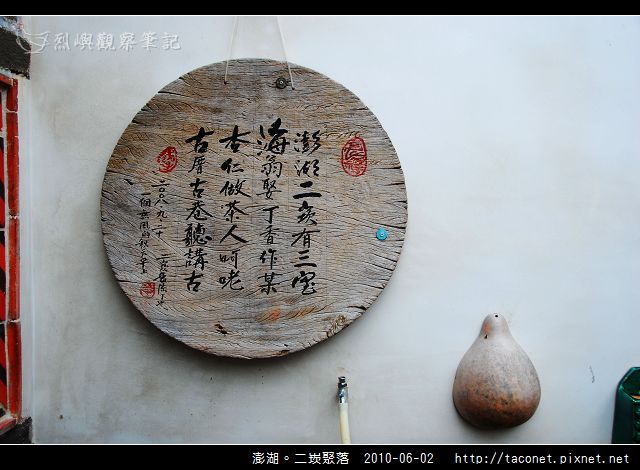 烈嶼觀察筆記
澎湖二崁有三宝
海翁娶丁香作某
杏仁做茶人呵咾
古厝古巷聽講古
澎湖。二崁聚落 2010-06-02 http://taconet.pixnet.net